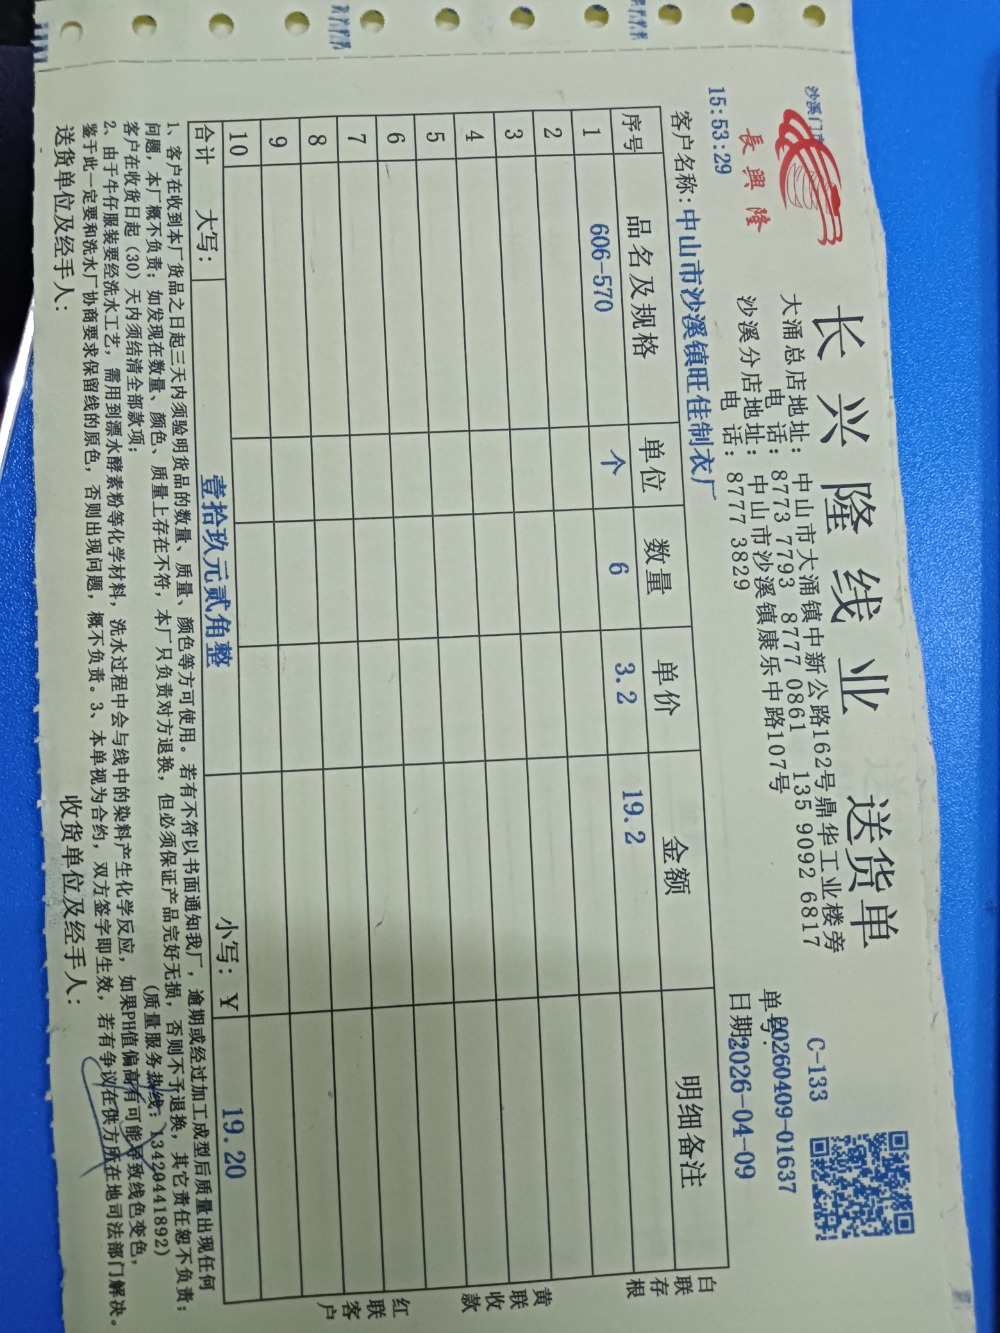 沙溪门市
長興隆
长兴隆线业 送货单
大涌总店地址：中山市大涌镇中新公路162号鼎华工业楼旁
电 话：8773 7793 8777 0861 135 9092 6817
沙溪分店地址：中山市沙溪镇康乐中路107号
电 话：8777 3829
C-133
15:53:29
单号：20260409-01637
客户名称：中山市沙溪镇旺佳制衣厂
日期2026-04-09
序号 品名及规格 单位 数量 单价 金额 明细备注
1 606-570 个 6 3.2 19.2
2
3
4
5
6
7
8
9
10
合计 大写： 壹拾玖元贰角整 小写：￥ 19.20
白联存根
黄联收款
红联客户
1、客户在收到本厂货品之日起三天内须验明货品的数量、质量、颜色等方可使用。若有不符以书面通知我厂，逾期或经过加工成型后质量出现任何
问题，本厂概不负责；如发现在数量、颜色、质量上存在不符，本厂只负责对方退换，但必须保证产品完好无损，否则不予退换，其它责任恕不负责；
客户在收货日起（30）天内须结清全部款项； （质量服务热线：13420441892）
2、由于牛仔服装要经洗水工艺，需用到漂水酵素粉等化学材料，洗水过程中会与线中的染料产生化学反应，如果PH值偏高有可能导致线色变色，
鉴于此一定要和洗水厂协商要求保留线的原色，否则出现问题，概不负责。3、本单视为合约，双方签字即生效，若有争议在供方所在地司法部门解决。
送货单位及经手人： 收货单位及经手人：